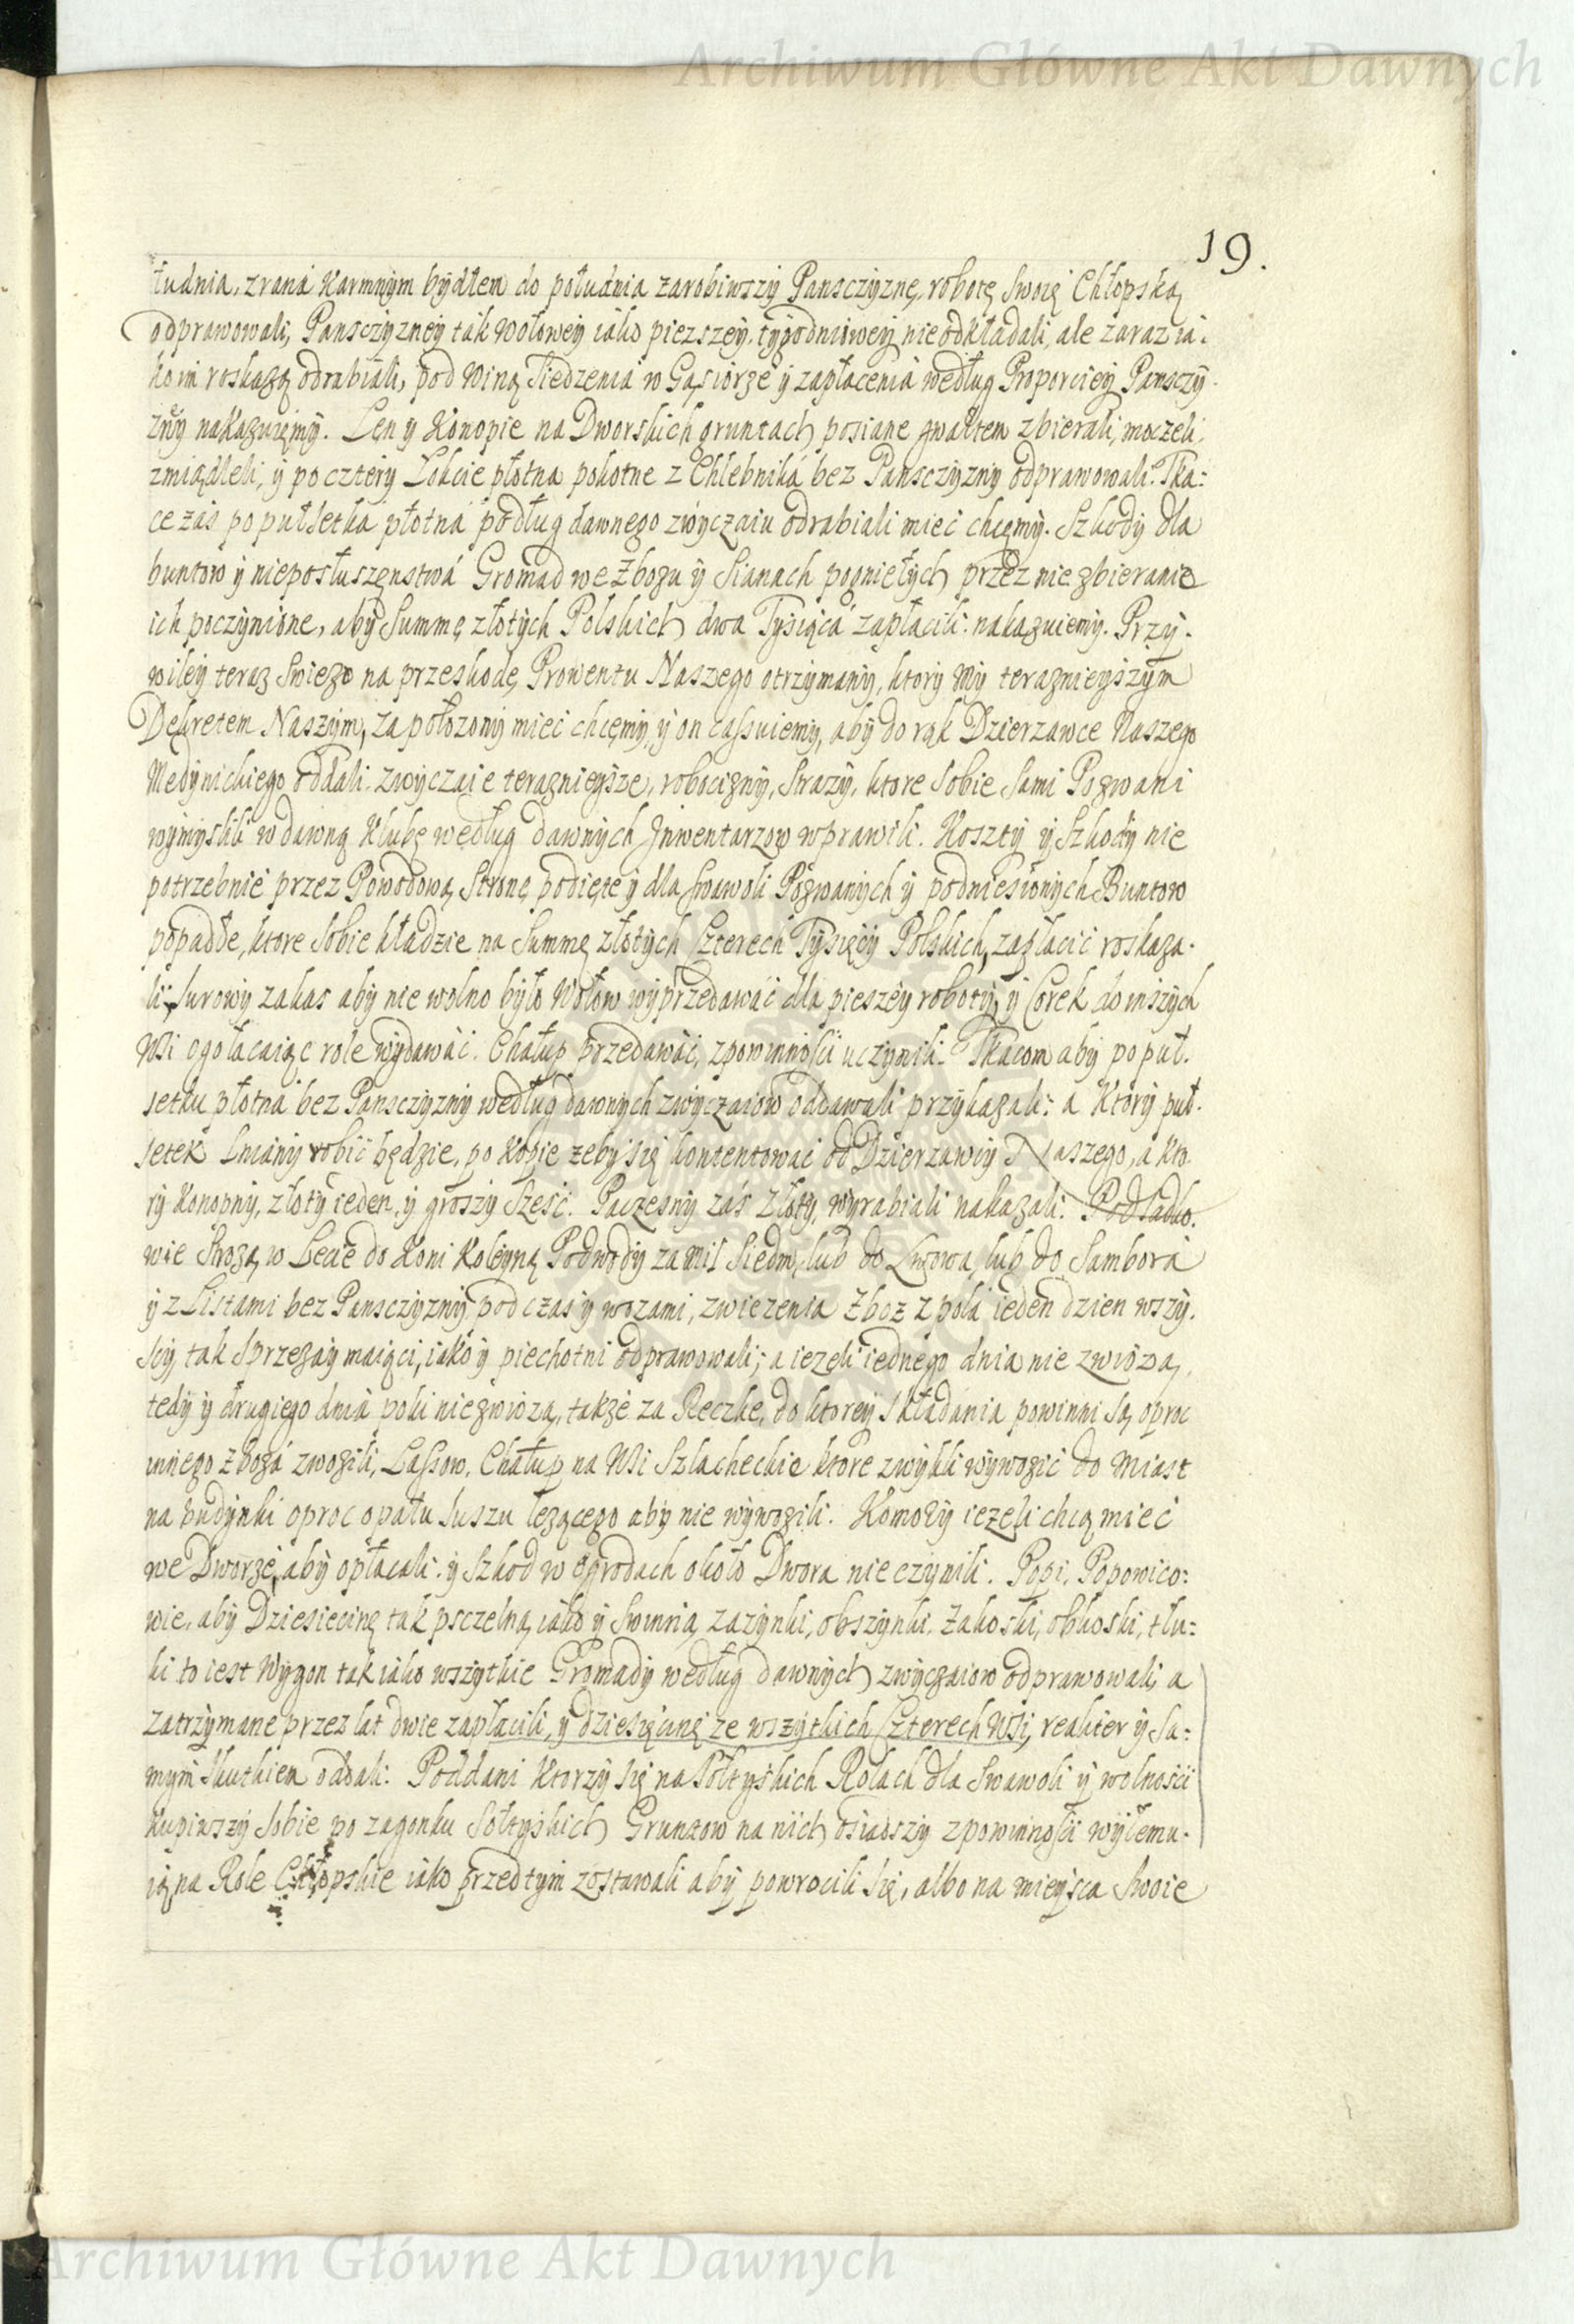 Archiwum Główne Akt Dawnych
19.
łudnia, zrana karmnym bydłem do południa zarobiwszy Pansczyznę, robotę Swoię Chłopską
odprawowali, Pansczyzney tak Wołowey iako pieszszey, tygodniowey nie odkładali, ale zaraz ia:
ko im roskażą odrabiali, pod Winą Siedzenia w Gąsiorze y zapłacenia według Proporciey Pansczy:
zny nakazuięmy. Len y Konopie na Dworskich gruntach posiane gwałtem zbierali, moczeli,
zmiądleli, y po cztery Łokcie płotna pokotne z Chlebnika bez Pansczyzny odprawowali. Tka:
ce zaś po pułsetka płotna podług dawnego zwyczaiu odrabiali mieć chcęmy. Szkody dla
buntow y nieposłuszęnstwa Gromad we Zbozu y Sianach pogniełych przez nie zbieranie
ich poczynione, aby Summę złotych Polskich dwa Tysiąca zapłacili nakazuiemy. Przy:
wiley teraz Swiezo na przeskodę Prowentu Naszego otrzymany, ktory My teraznieyszym
Dekretem Naszym, za połozony mieć chcęmy, y on cassuiemy, aby do rąk Dzierzawce Naszego
Medynickiego oddali. zwyczaie teraznieysze, robocizny, Strazy, ktore Sobie Sami Pozwani
wymyslili w dawną Klubę według dawnych Inwentarzow wprawili. Koszty y Szkody nie
potrzebnie przez Powodową Stronę podięte y dla Swawoli Pozwanych y podniesionych Buntow
popadłe, ktore Sobie kładzie na Summę złotych Czterech Tysięcy Polskich, zapłacić roskaza:
li, Surowy zakas aby nie wolno było Wołow wyprzedawać dla pieszey roboty, y Corek do inszych
Wsi ogołacaiąc role wydawać. Chałup przedawać, z powinności uczynili. Tkacom aby po puł:
setku płotna bez Pansczyzny według dawnych zwyczaiow oddawali przykazali: a Ktory puł:
setek Lniany robić będzie, po kopie zeby się kontentować od Dzierzawcy Naszego, a kto:
ry Konopny, złoty ieden, y groszy Szesć. Paczesny zaś Złoty, wyrabiali nakazali. Podsadko:
wie Strożą w Lecie do Koni Koleyną Podwody za Mil Siedm, lub do Lwowa, lub do Sambora
y z Listami bez Pansczyzny pod czas y wozami, zwiezenia Zboz z pola ieden dzien wszy:
scy tak Sprzezay maiący, iako y piechotni odprawowali; a iezeli iednego dnia nie zwiozą,
tedy y drugiego dnia poki nie zwiozą, takze za Reczke, do ktorey Składania powinni Są, oproc
innego Zboza zwozili, Lassow, Chałup na Wsi Szlacheckie ktore zwykli wywozić do Miast
na budynki oproc opału Suszu lezącego aby nie wywozili. Komory iezeli chcą mieć
we Dworze, aby opłacali: y Szkod w ogrodach około Dwora nie czynili. Popi, Popowico:
wie, aby Dziesiecinę tak psczelną iako y Swinnią, zazynki, obszynki, Zakoski, obkoski, tłu:
ki to iest Wygon tak iako wszytkie Gromady według dawnych zwyczaiow odprawowali, a
zatrzymane przez lat dwie zapłacili, y dziesięcinę ze wszytkich Czterech Wsi, realiter y Sa:
mym Skutkiem oddali. Poddani Ktorzy się na Sołtyskich Rolach dla Swawoli y wolności
kupiwszy Sobie po zagonku Sołtyskich Gruntow na nich osiadszy z powinności wyłemu:
ią na Role Chłopskie iako przed tym zostawali aby powrocili się, albo na mieysca Swoie
Archiwum Główne Akt Dawnych